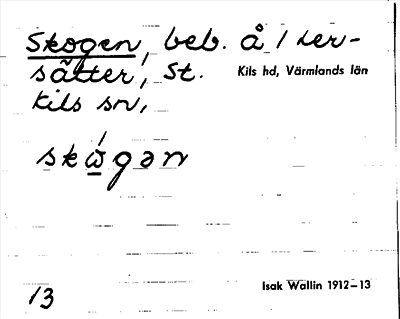 Skogen, beb. å /
sätter, St. Kils hd, Värmlands län
Kils sn,
skώgən
13 Isak Wallin 1912–13